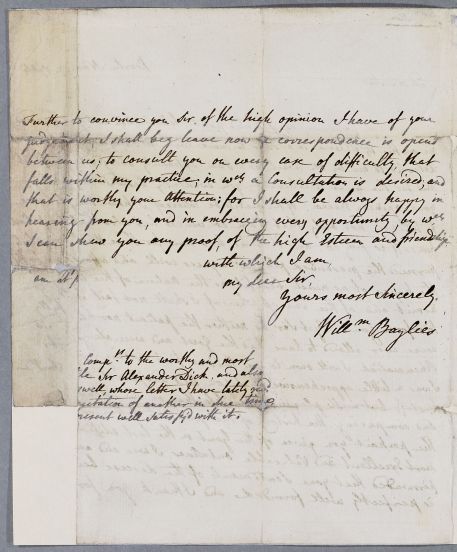 Further to convince you Sir, of the high opinion I have of your
judgment, I shall beg leave now a correspondence is open'd
between us; to consult you on every case of difficulty, that
falls within my practice, in wch a Consultation is desired, and
that is worthy your Attention; for I shall be always happy in
hearing from you, and in embracing every opportunity, by wch
I can shew you any proof, of the high Esteem and friendship
with which I am,
my dear Sir,
Yours most Sincerely,
Willm Baylies
Compts to the worthy and most
Sir Alexander Dick, and also
whose letter I have lately
of another in due time
well satisfyd with it.